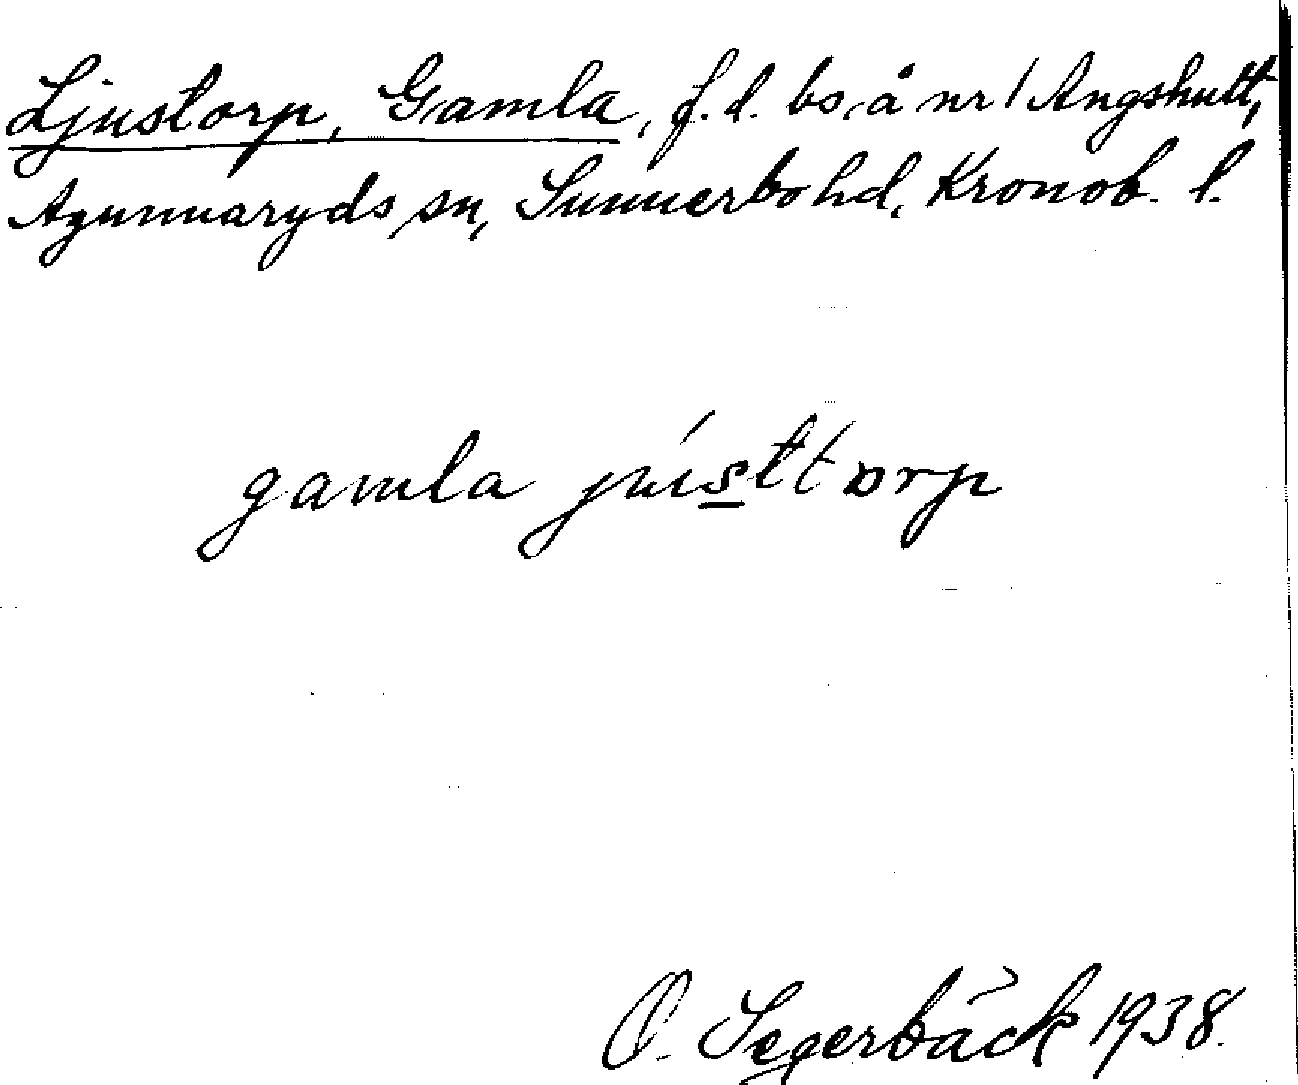 Ljustorp, Gamla, f.d. bs. å nr 1 Ängshult,
Agunnaryds sn, Sunnerbo hd, Kronob. l.
gamla jústtorp
O. Segerbäck 1938.